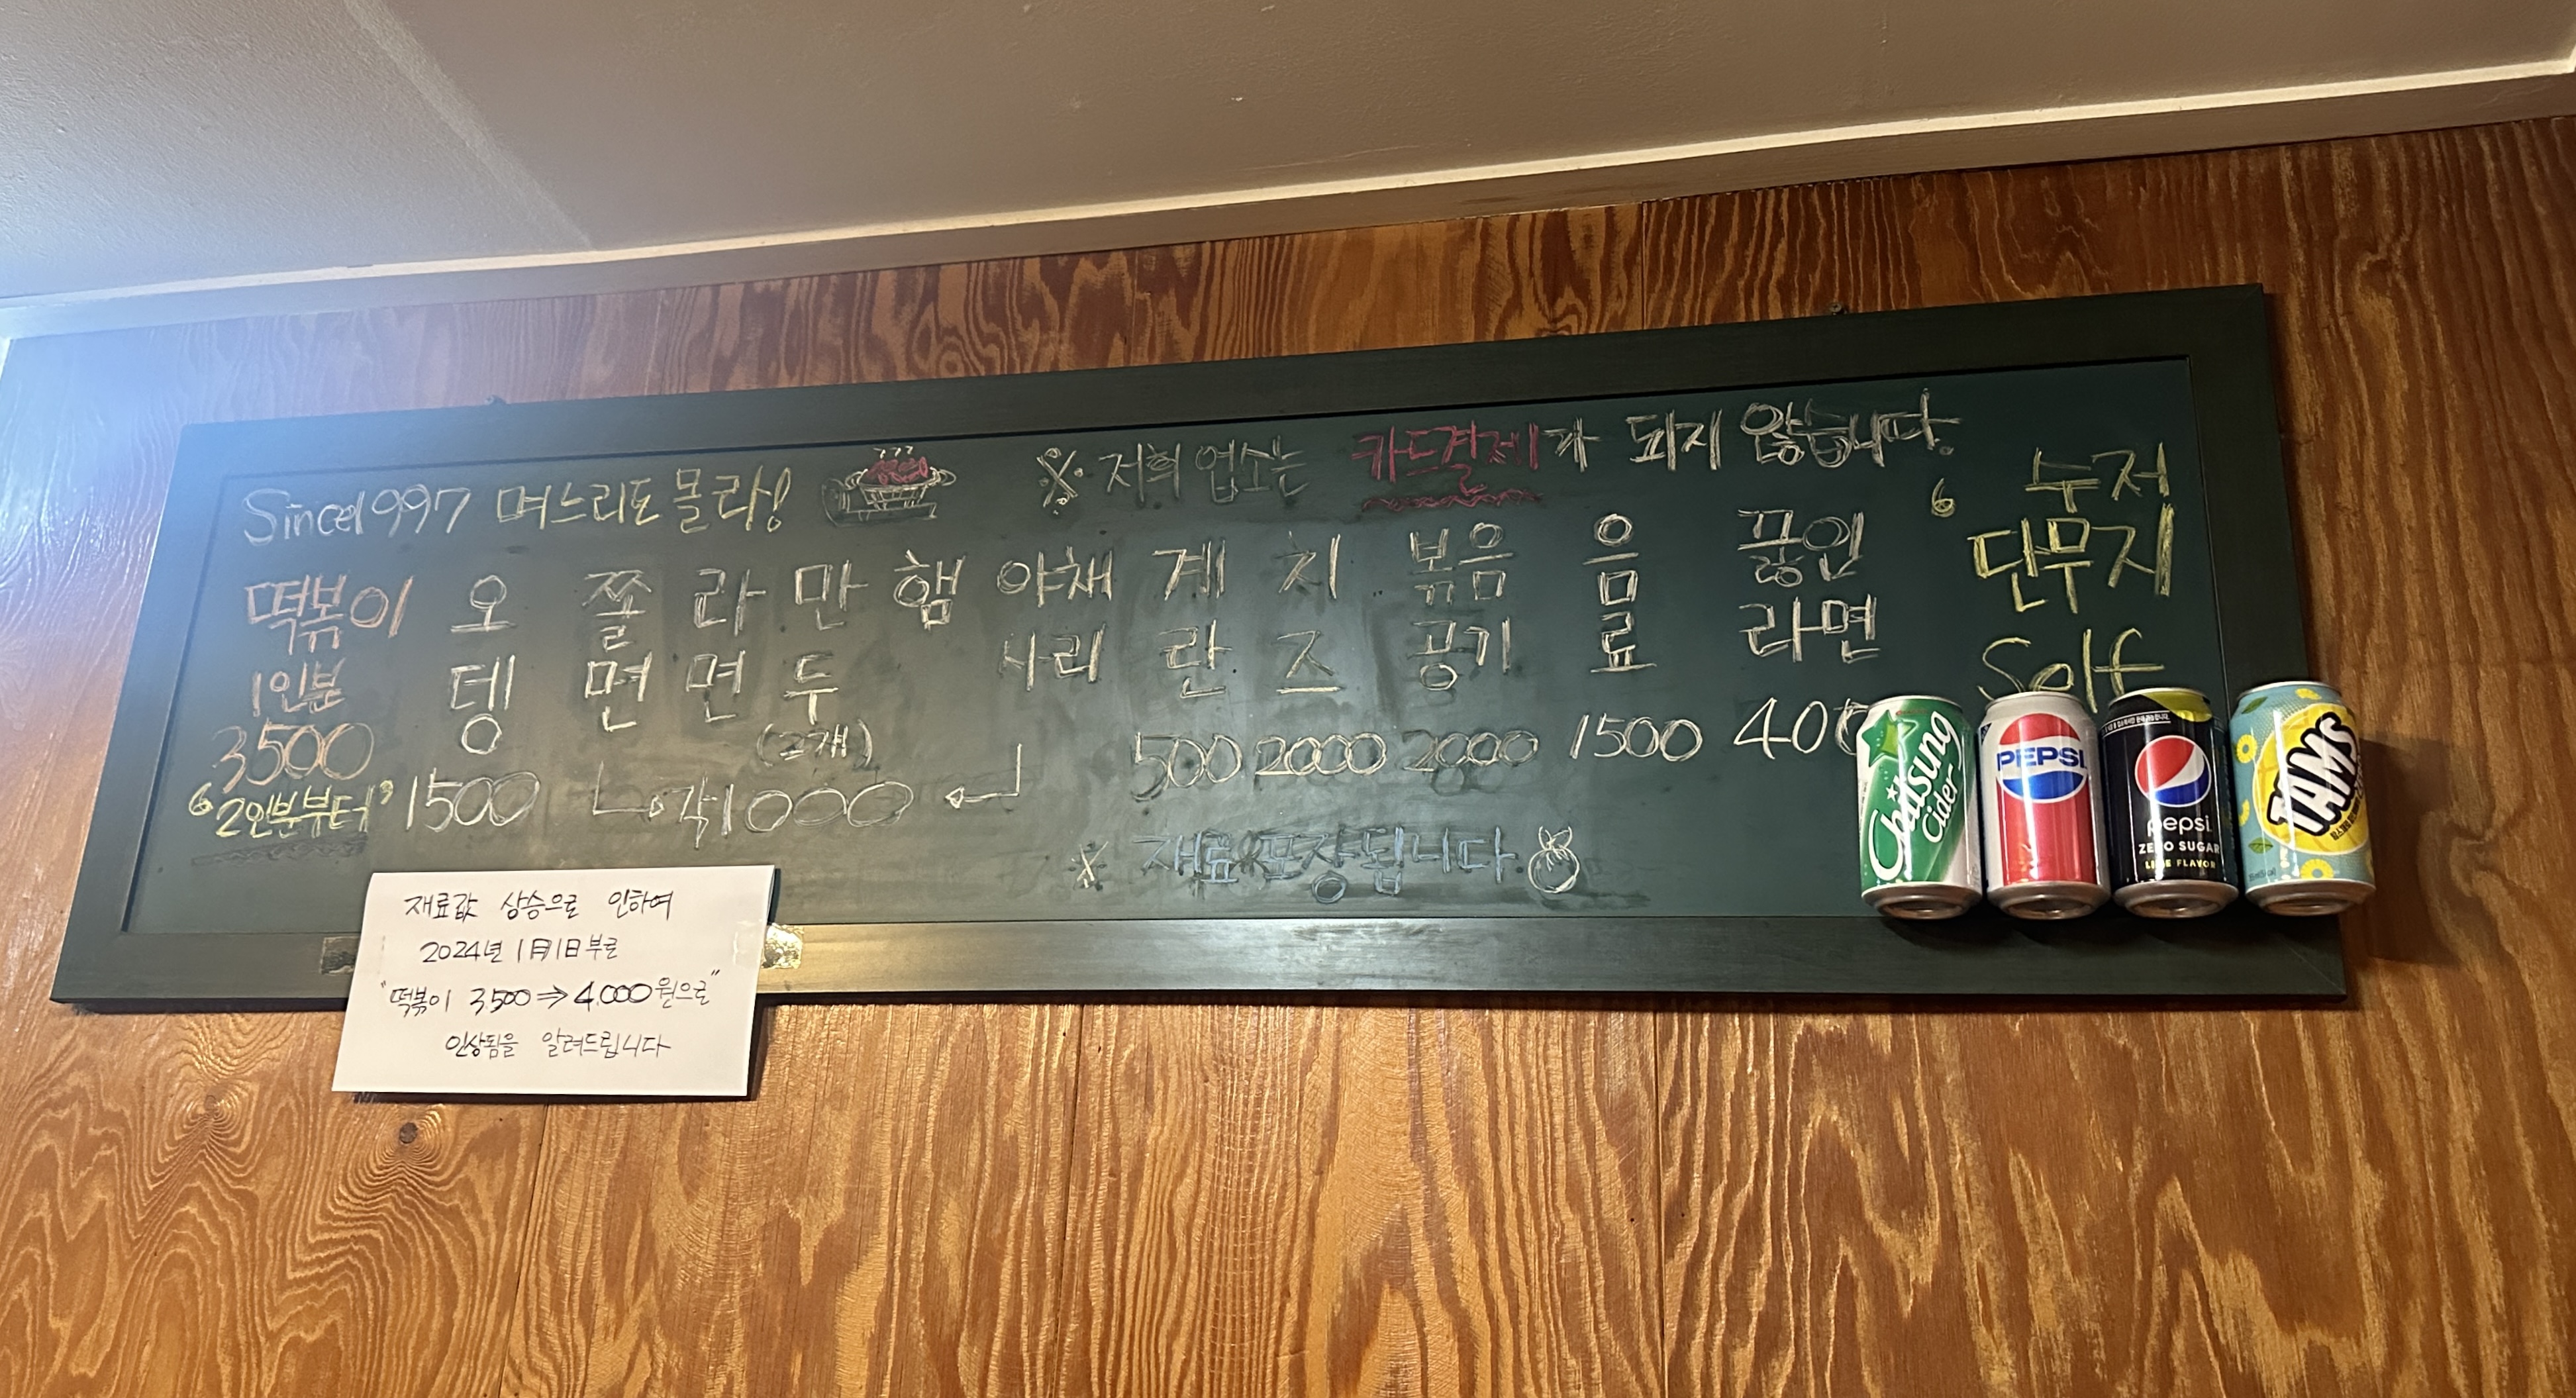 Since1997 며느리도 몰라!
※ 저희 업소는 카드결제가 되지 않습니다.
떡볶이 1인분 3500
"2인분부터"
오뎅 1500
쫄면 라면 만두 (2개) 햄 야채사리
각 1000
계란 500
치즈 2000
볶음공기 2000
음료 1500
끓인라면
수저
단무지
Self
※ 재료포장됩니다.
재료값 상승으로 인하여
2024년 1月1日부로
"떡볶이 3,500⇒4,000원으로"
인상됨을 알려드립니다
Chilsung Cider
PEPSI
pepsi
ZERO SUGAR
LIME FLAVOR
TAMS